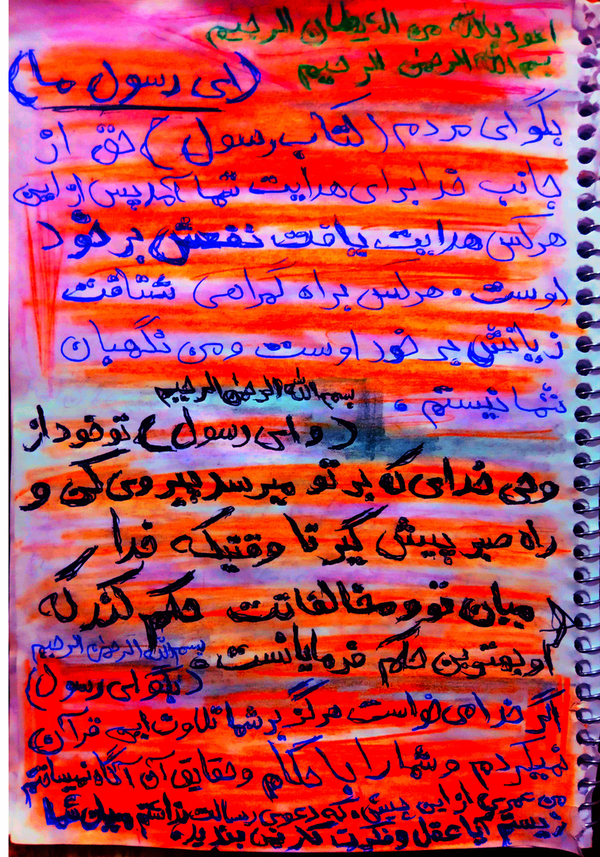 اعوذ بالله من الشیطان الرجیم
بسم الله الرحمن الرحیم
(ای رسول ما)
بگو ای مردم (کتاب رسول) حق از
جانب خدا برای هدایت شما آمد پس از این
هرکس هدایت یافت نفعش بر خود
اوست . هرکس براه گمراهی شتافت
زیانش بر خود اوست و من نگهبان
شما نیستم .
بسم الله الرحمن الرحیم
(و ای رسول) تو خود از
وحی خدای که بر تو میرسد پیروی کن و
راه صبر پیش گیر تا وقتیکه خدا
میان تو و مخالفانت حکم کند که
او بهترین حکم فرمایانست .
بسم الله الرحمن الرحیم
(بگو ای رسول)
اگر خدا می خواست هرگز بر شما تلاوت این قرآن
نمیکردم و شما را با حکام و حقایق آن آگاه نمیساختم
من عمری از این پیش که دعوی رسالت نداشتم میان شما
زیستم آیا عقل و فکرت کار نمی بندید .